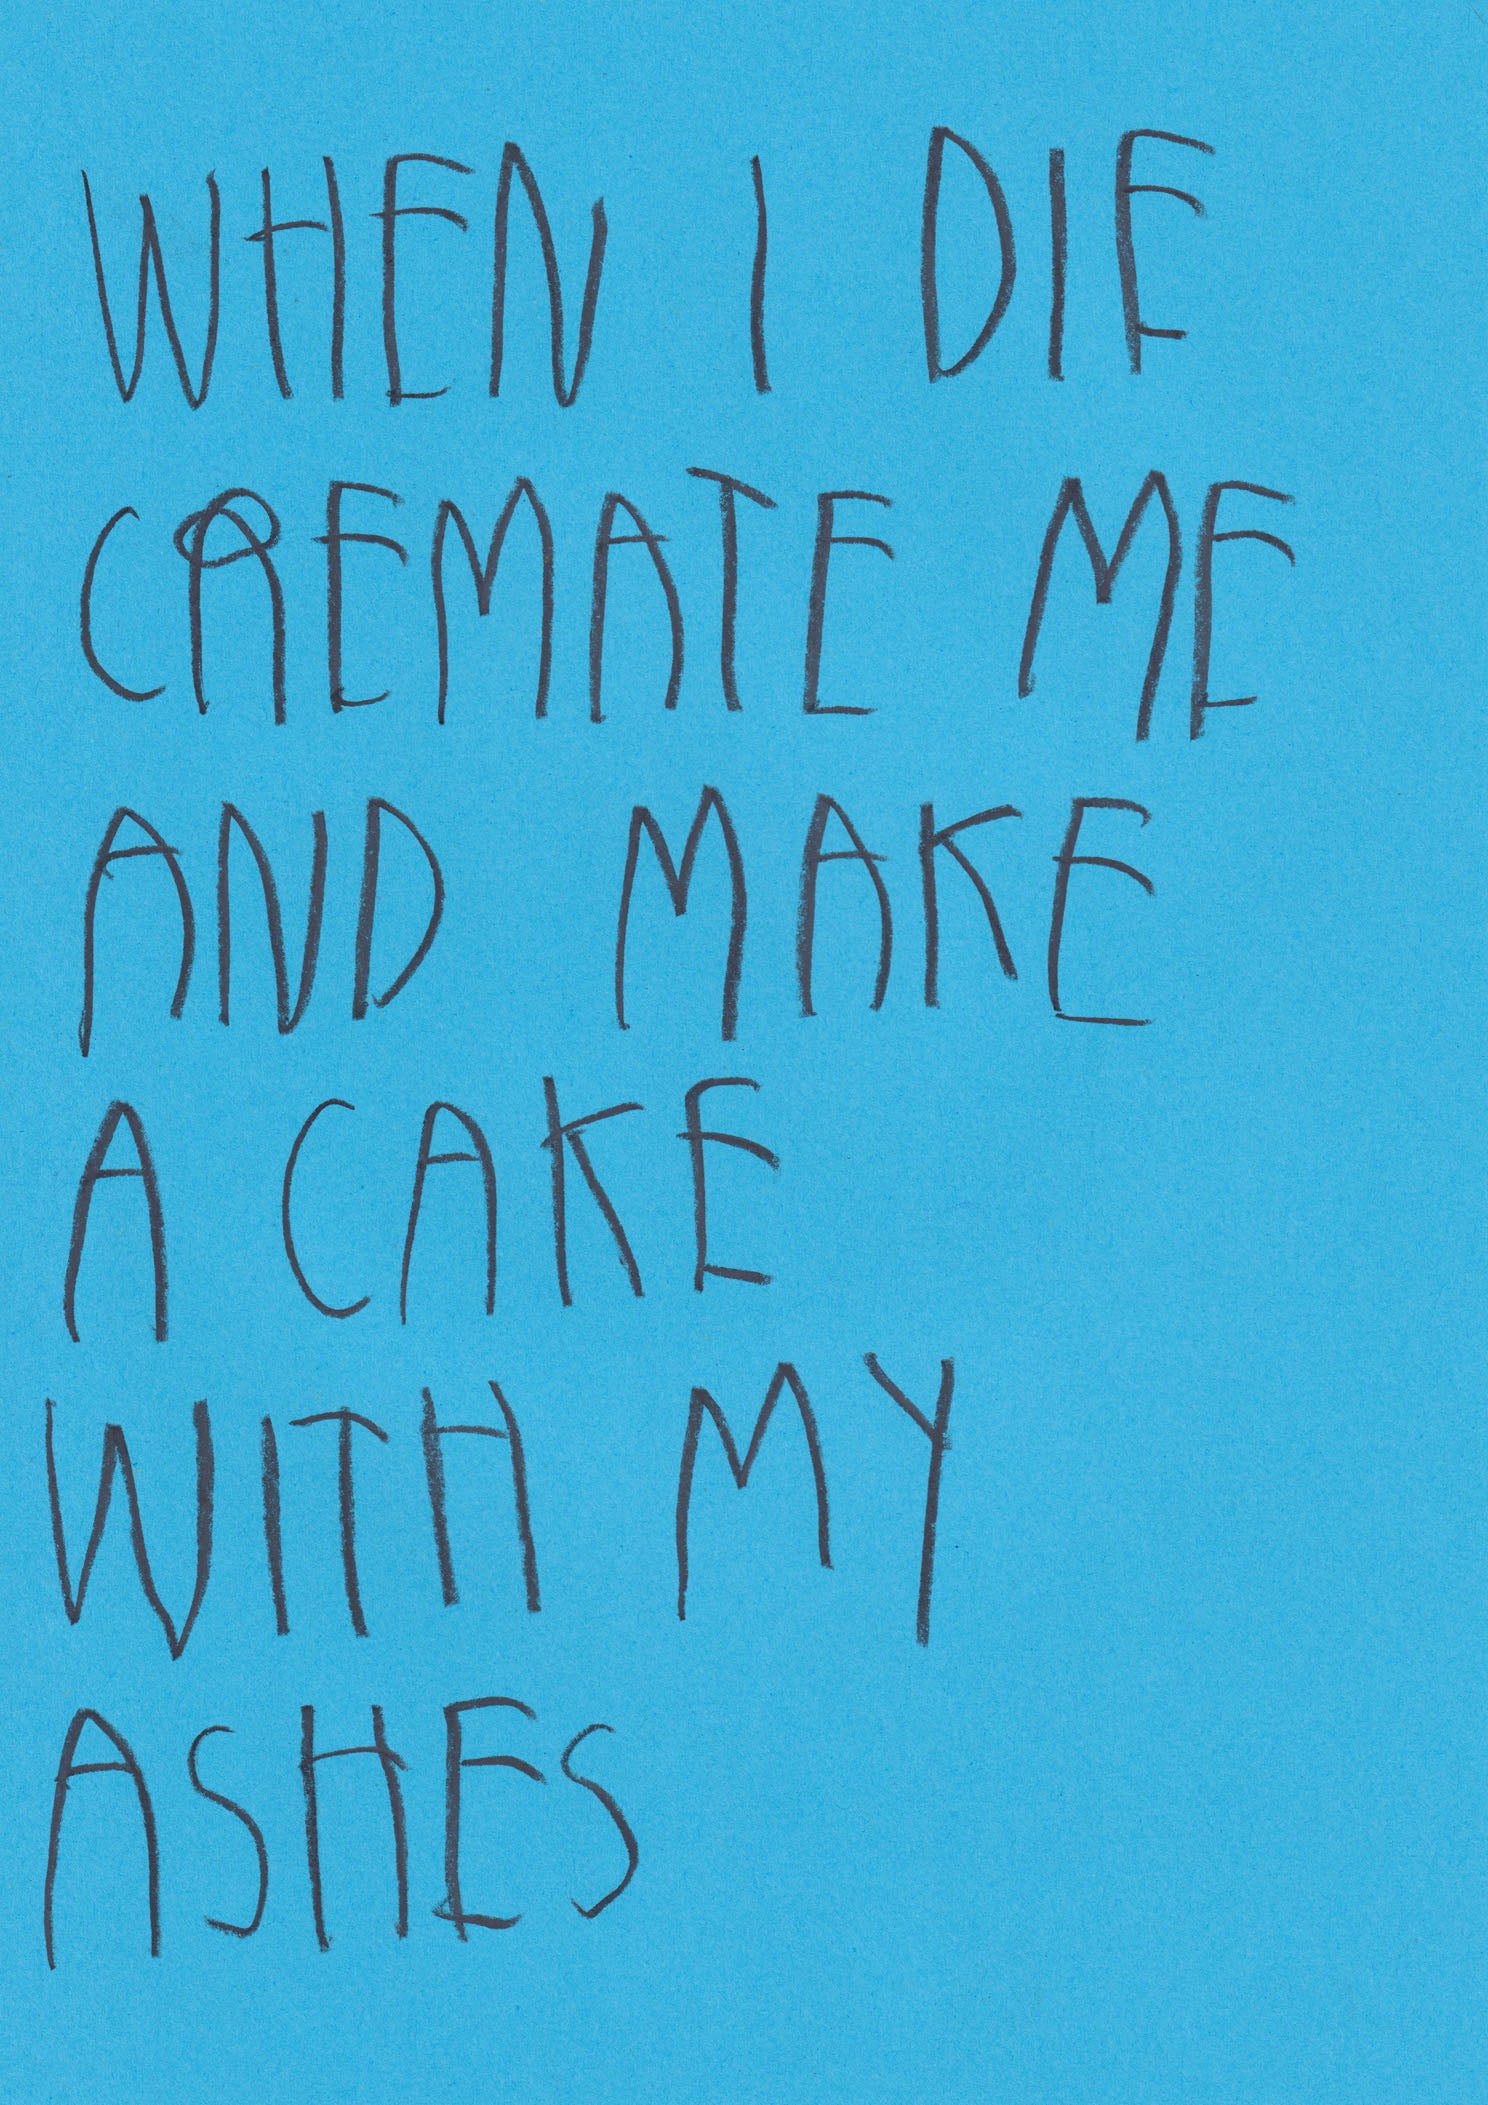 WHEN I DIE
CREMATE ME
AND MAKE
A CAKE
WITH MY
ASHES